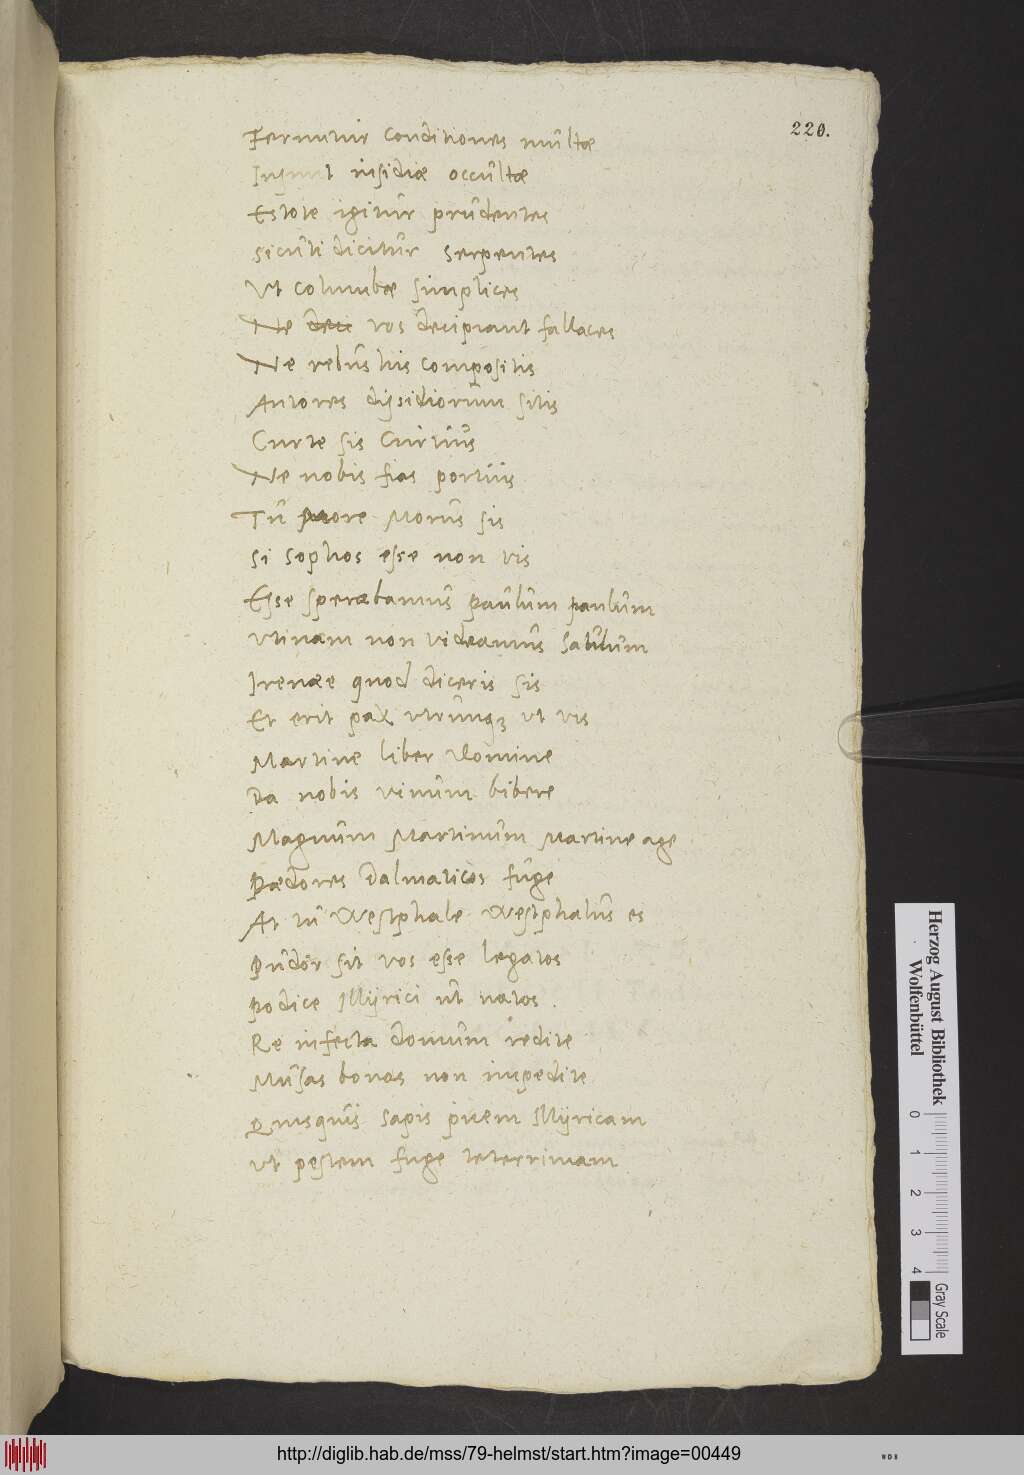 220.
Feruntur conditiones multæ
Insunt insidiæ occultæ
Estote igitur prudentes
Sicuti dicitur serpentes
Ut columbæ simplices
Ne deci vos decipiant fallaces
Ne rebus his compositis
Autores dissidiorum sitis
Curte sis Curtius
Ne nobis fias portius
Tu More Morus sis
Si sophos esse non vis
Esse sperabamus paulum paulum
Utinam non videamus Saulum
Irenæe quod diceris sis
Et erit pax utrunq₃ ut vis
Martine liber Domine
Da nobis vinum bibere
Magnum Martinum Martine age
Pædores Dalmaticos fuge
At tu Westphale Westphalus es
Pudor sit vos esse legatos
Podice Illyrici ut natos.
Re infecta domum redite
Musas bonas non impedite
Quisquis sapis puem Illyricam
Ut pestem fuge teterrimam
Herzog August Bibliothek
Wolfenbüttel
0 1 2 3 4
Gray Scale
http://diglib.hab.de/mss/79-helmst/start.htm?image=00449
WDB